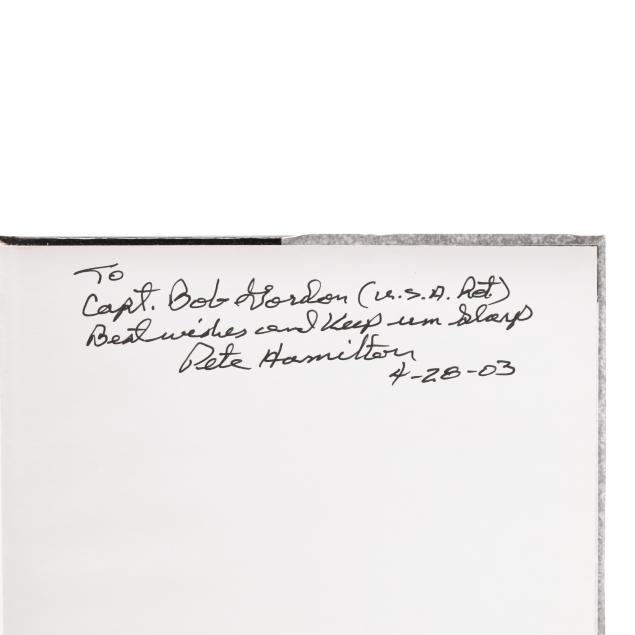 To
Capt. Bob Gordon (U.S.A. Ret)
Best wishes and Keep um Sharp
Pete Hamilton
4-28-03